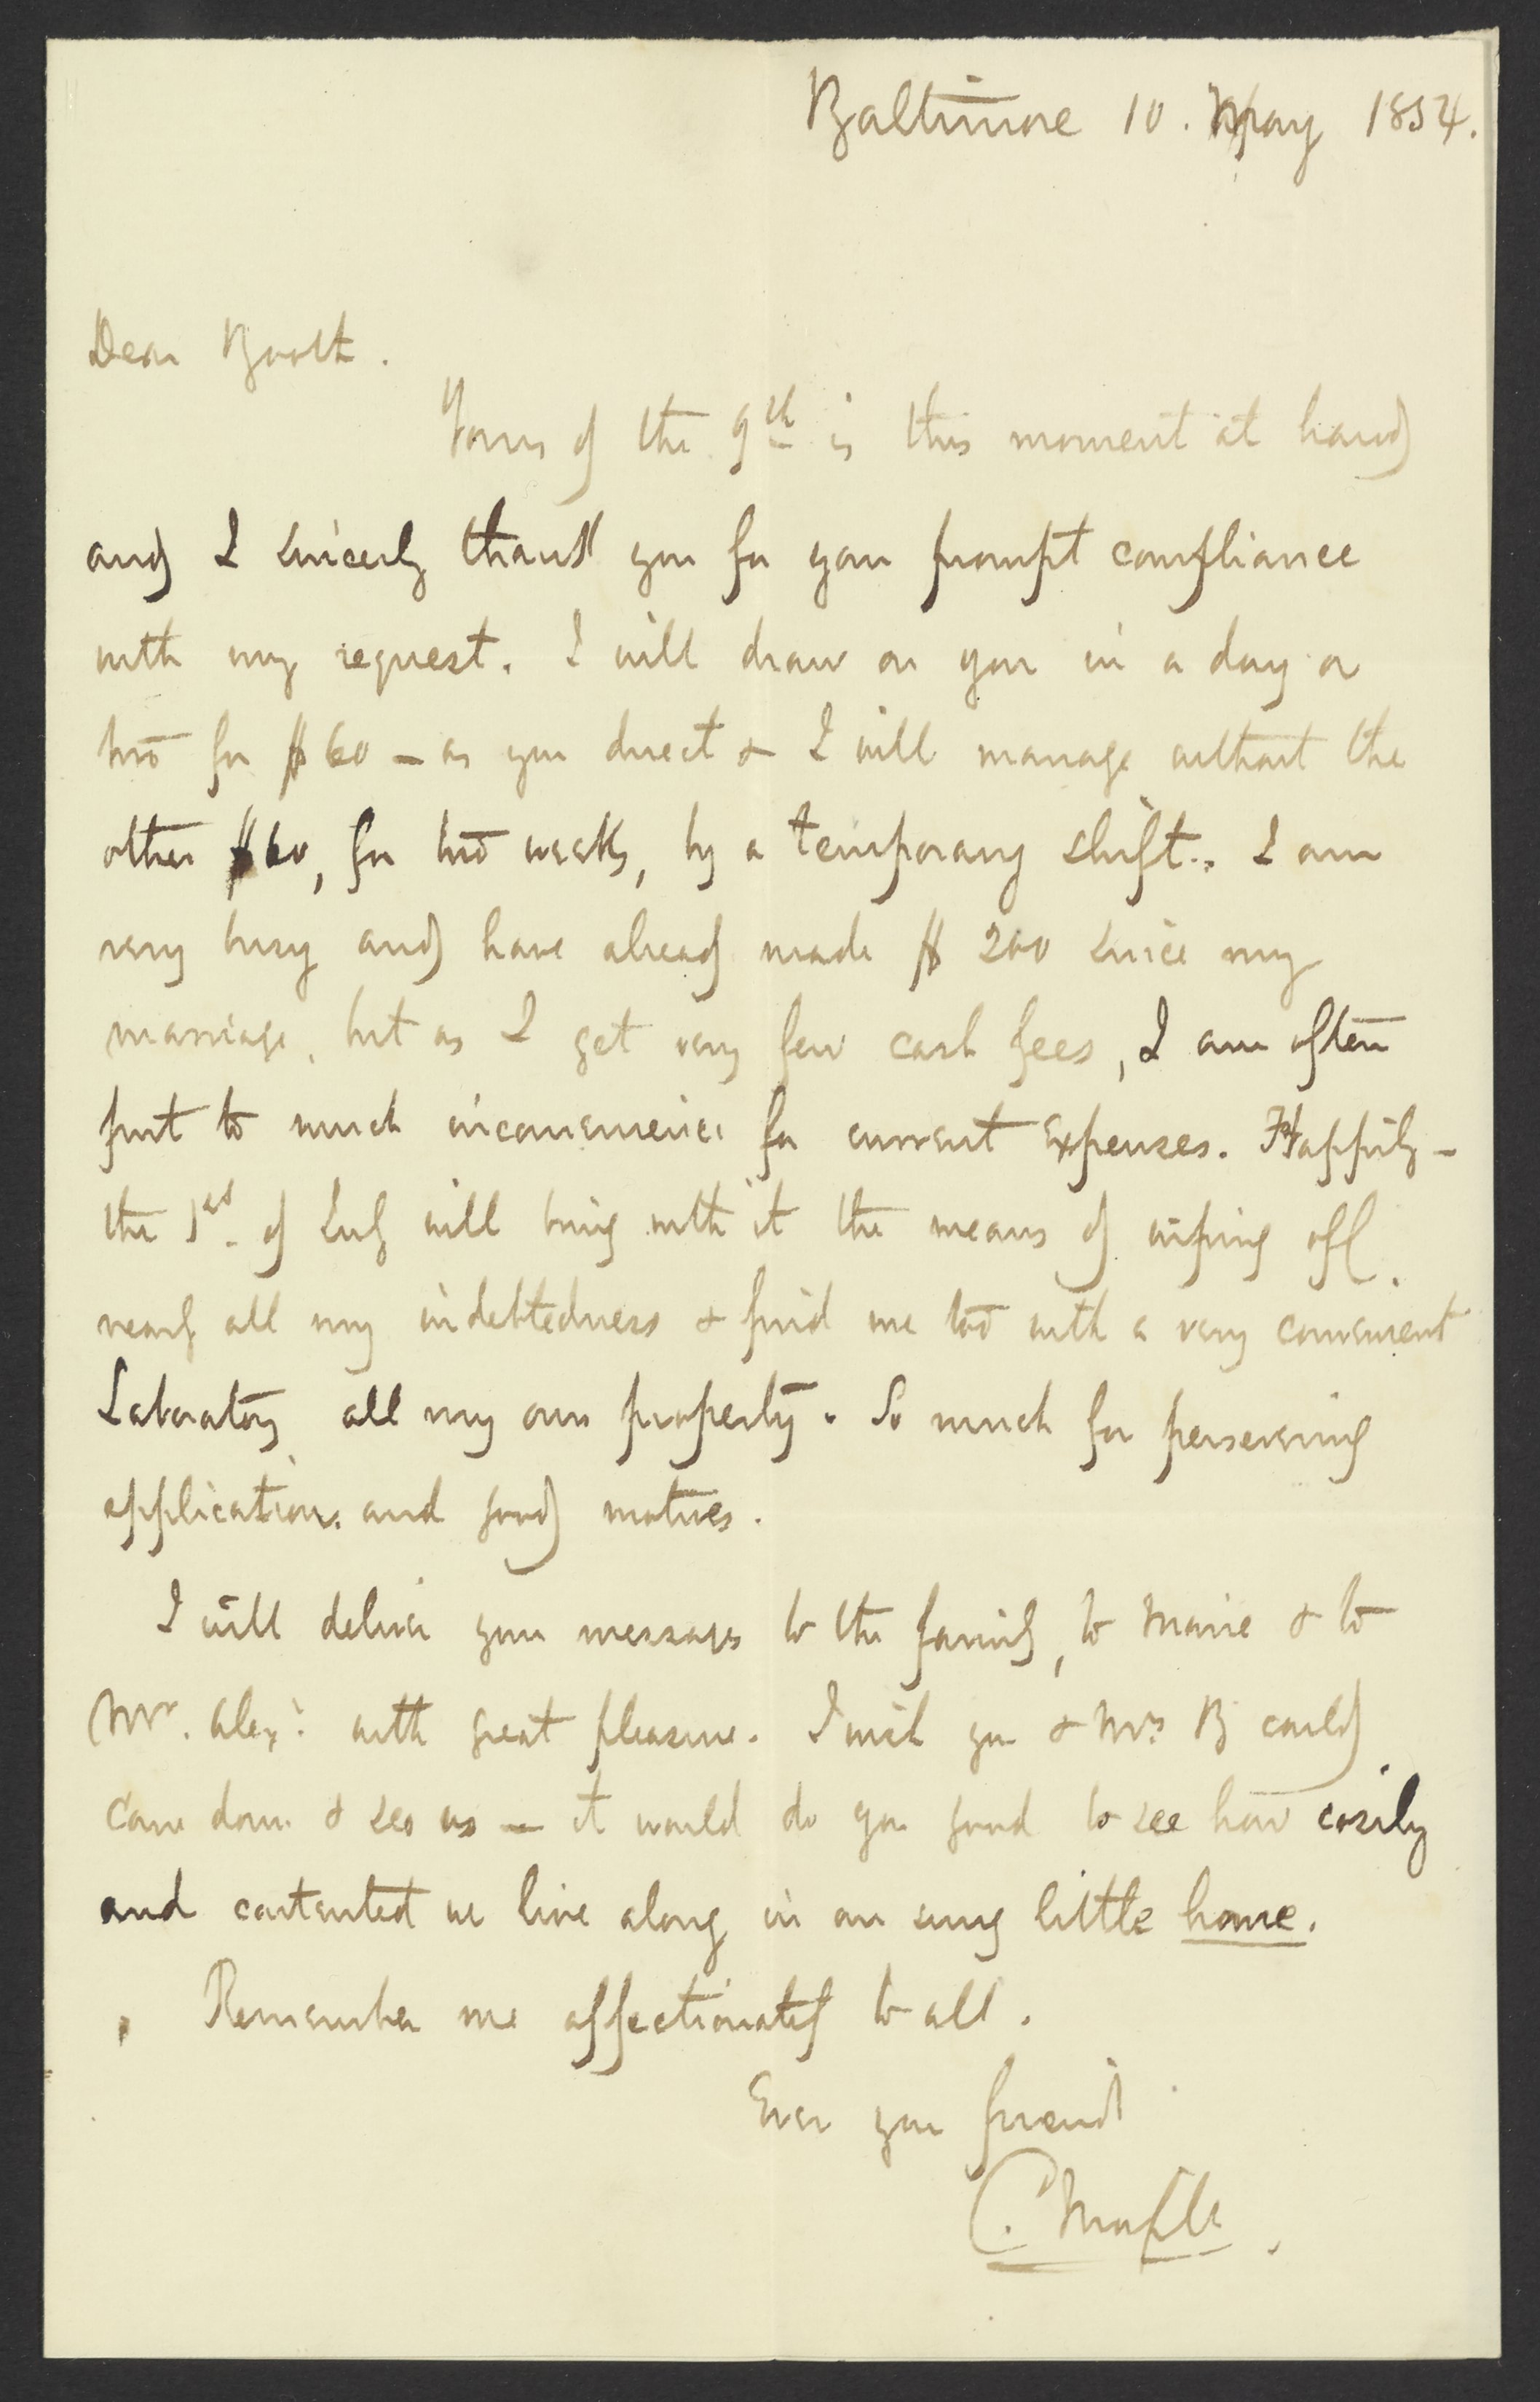 Baltimore 10. May 1854.
Dear Booth.
Yours of the 9th is this moment at hand
and I sincerely thank you for your prompt compliance
with my request. I will draw on you in a day or
two for $60 – as you direct & I will manage without the
other $60, for two weeks, by a temporary shift. I am
very busy and have already made $200 since my
marriage, but as I get very few cash fees, I am often
put to much inconvenience for current expenses. Happily –
the 1st of July will bring with it the means of wiping off
nearly all my indebtedness & find me too with a very convenient
Laboratory all my own property. So much for persevering
application and good motives.
I will deliver your messages to the family, to Marie & to
Mr. Alexr with great pleasure. I wish you & Mrs B could
come down & see us – it would do you good to see how cosily
and contented we live along in our snug little home.
Remember me affectionately to all.
Ever your friend
C. Morfit